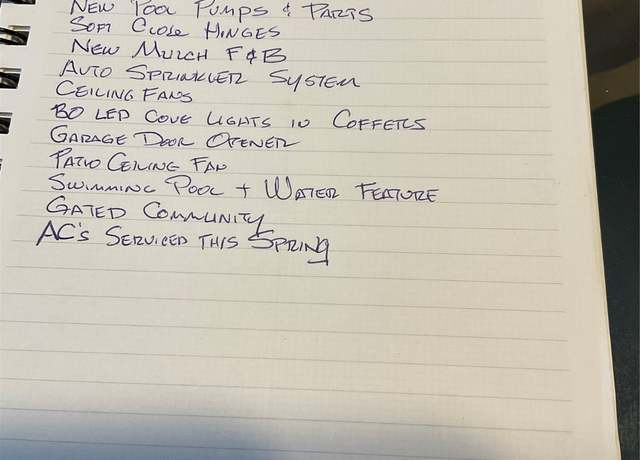 New Pool Pumps & Parts
Soft Close Hinges
New Mulch F & B
Auto Sprinkler System
Ceiling Fans
BO LED Cove Lights in Coffers
Garage Door Opener
Patio Ceiling Fan
Swimming Pool + Water Feature
Gated Community
AC's Serviced this Spring